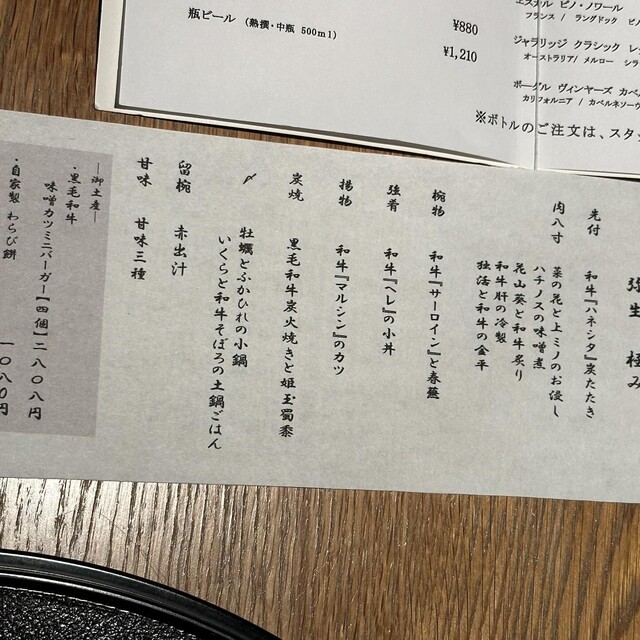 瓶ビール (熱撰・中瓶 500ml)
¥880
¥1,210
エスオル ピノ・ノワール
フランス / ラングドック
ジャラリッジ クラシック
オーストラリア/ メルロー
ボーグル ヴィンヤーズ
カリフォルニア / カベルネソー
※ボトルのご注文は、スタ
弥生 極み
先付 和牛『ハネシタ』炭たたき
肉八寸 菜の花と上ミノのお浸し
ハチノスの味噌煮
花山葵と和牛炙り
和牛肝の冷製
独活と和牛の金平
椀物 和牛『サーロイン』と春盤
強肴 和牛『ヘレ』の小丼
揚物 和牛『マルシン』のカツ
炭焼 黒毛和牛炭火焼きと姫玉蜀黍
〆 牡蠣とふかひれの小鍋
いくらと和牛そぼろの土鍋ごはん
留椀 赤出汁
甘味 甘味三種
―御土産―
・黒毛和牛
味噌カツミニバーガー【四個】二八〇八円
・自家製 わらび餅 一〇八〇円